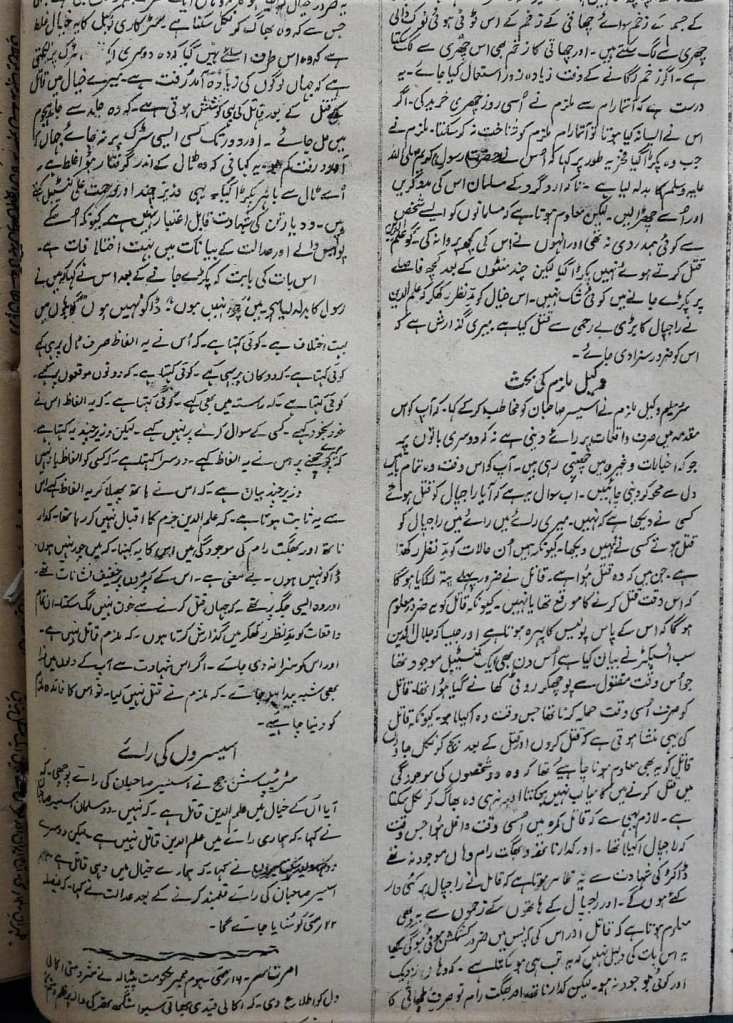 کے جسم کے زخم سوائے چھاتی کے زخم کے اس ٹوٹی ہوئی نوک والی
چھری سے لگ سکتے ہیں۔ اور چھاتی کا زخم بھی اس چھری سے لگ سکتا
ہے۔ اگر زخم لگانے کے وقت زیادہ زور استعمال کیا جائے۔ یہ
درست ہے کہ آتمارام سے ملزم نے اُسی روز چھری خرید کی۔ اگر
اس نے ایسا نہ کیا ہوتا تو آتمارام ملزم کو شناخت نہ کر سکتا۔ ملزم نے
جب وہ پکڑا گیا فخریہ طور پر کہا کہ اُس نے حضرت رسول اکرم صلی اللہ
علیہ وسلم کا بدلہ لیا ہے۔ تاکہ ارد گرد کے مسلمان اس کی مدد کریں
اور اُسے چھڑا لیں۔ لیکن معلوم ہوتا ہے کہ مسلمانوں کو ایسے شخص
سے کوئی ہمدردی نہ تھی اور انہوں نے اس کی کچھ پرواہ نہ کی۔ گو علم الدین
قتل کرتے ہوئے نہیں پکڑا گیا لیکن چند منٹوں کے بعد کچھ فاصلے
پر پکڑے جانے میں کوئی شک نہیں۔ اس خیال کو مدنظر رکھ کر کہ علم الدین
نے راجپال کا بڑی بے رحمی سے قتل کیا ہے میری گذارش ہے کہ
اس کو ضرور سزا دی جائے۔
وکیل ملزم کی بحث
مسٹر سلیم وکیل ملزم نے اسیسر صاحبان کو مخاطب کر کے کہا۔ کہ آپ کو اس
مقدمہ میں صرف واقعات پر رائے دینی ہے نہ کہ دوسری باتوں پر
جو کہ اخبارات وغیرہ میں چھپتی رہی ہیں۔ آپ کو اس وقت وہ تمام باتیں
دل سے محو کر دینی چاہئیں۔ اب سوال یہ ہے کہ آیا راجپال کو قتل ہوتے
کسی نے دیکھا ہے کہ نہیں۔ میری رائے میں راجپال کو
قتل ہوتے کسی نے نہیں دیکھا۔ کیونکہ میں اُن حالات کو مدنظر رکھتا
ہے۔ جن میں کہ وہ قتل ہوا ہے۔ قاتل نے ضرور پہلے پتہ لگایا ہوگا
کہ اس وقت قتل کرنے کا موقع تھا یا نہیں۔ کیونکہ قاتل کو یہ ضرور معلوم
ہوگا کہ اس کے پاس پولیس کا پہرہ ہوتا ہے اور جیسا کہ جلال الدین
سب انسپکٹر نے بیان کیا ہے اُس دن بھی ایک کنسٹیبل موجود تھا
جو اُس وقت مقتول سے پوچھ کر روٹی کھانے گیا ہوا تھا۔ قاتل
کو صرف اُسی وقت حملہ کرنا تھا جس وقت وہ اکیلا ہو۔ کیونکہ قاتل
کی یہی منشا ہوتی ہے کہ قتل کروں اور قتل کے بعد بچ کر نکل جاؤں
قاتل کو یہ بھی معلوم ہونا چاہیے تھا کہ وہ دو شخصوں کی موجودگی
میں قتل کرنے میں کامیاب نہیں ہو سکتا اور نہ ہی وہ بھاگ کر نکل سکتا
ہے۔ لازم یہی ہے کہ قاتل کمرہ میں اُسی وقت داخل ہوا جس وقت
کہ راجپال اکیلا تھا۔ اور کدار ناتھ و بھگت رام وہاں موجود نہ تھے
ڈاکٹر کی شہادت سے یہ ظاہر ہوتا ہے کہ قاتل نے راجپال پر کئی وار
کئے ہوں گے۔ اور راجپال کے ہاتھوں کے زخموں سے یہ بھی
معلوم ہوتا ہے کہ قاتل اور اس کی آپس میں ضرور کشمکش ہوئی ہوگی
یہ اس بات کی دلیل نہیں کہ یہ تب ہی ہو سکتا ہے۔ کہ وہاں نزدیک
اور کوئی موجود نہ ہو۔ لیکن کدار ناتھ اور بھگت رام تو صرف
جس سے کہ وہ بھاگ کر نکل سکتا ہے۔ سرکاری وکیل کا یہ خیال غلط
ہے کہ وہ اس طرف اسلئے نہیں گیا کہ وہ دوسری
ہے کہ جہاں لوگوں کی زیادہ آمد و رفت ہے۔ میرے خیال میں قاتل
کی قتل کے بعد قاتل کی یہی کوشش ہوتی ہے۔ کہ وہ جلد سے جلد ہجوم
میں مل جائے۔ اور دور تک کسی ایسی سڑک پر نہ جائے جہاں
آمد و رفت کم ہو۔ یہ کہانی کہ وہ ٹال کے اندر گرفتار ہوا غلط ہے۔
اُسے ٹال سے باہر پکڑا گیا۔ یہی وزیر چند اور رحمت علی کنسٹیبل کہتے
ہیں۔ ودیا رتن کی شہادت قابل اعتبار نہیں ہے کیونکہ اُسکے
پولیس والے اور عدالت کے بیانات میں بہت اختلافات ہے۔
اس بات کی بابت کہ پکڑے جانے کے بعد اس نے کہا کہ میں نے
رسول کا بدلہ لیا ہے میں چور نہیں ہوں۔ ڈاکو نہیں ہوں گواہوں میں
بہت اختلاف ہے۔ کوئی کہتا ہے۔ کہ اُس نے یہ الفاظ صرف ٹال پر ہی کہے
کوئی کہتا ہے۔ کہ دوکان پر ہی ہے۔ کوئی کہتا ہے۔ کہ دونوں موقعوں پر کہے۔
کوئی کہتا ہے۔ کہ راستہ میں بھی کہے۔ کوئی کہتا ہے۔ کہ یہ الفاظ اس نے
خود بخود کہے۔ کسی کے سوال کرنے پر نہیں کہے۔ لیکن وزیر چند یہ کہتا ہے۔
کہ پوچھنے پر اس نے یہ الفاظ کہے۔ دوسرا کہتا ہے۔ کہ کسی کو الفاظ یاد نہیں
وزیر چند بیان ہے۔ کہ اس نے ہاتھ پھیلا کر یہ الفاظ کہے اس
سے یہ ثابت ہوتا ہے۔ کہ علم الدین جرم کا اقبال نہیں کر رہا تھا۔ کدار
ناتھ اور بھگت رام کی موجودگی میں اس کا یہ کہنا۔ کہ میں چور نہیں ہوں
ڈاکو نہیں ہوں۔ بے معنی ہے۔ اس کے کپڑوں پر خفیف نشانات تھے۔
اور وہ ایسی جگہ پر تھے۔ کہ جہاں قتل کرنے سے خون نہیں لگ سکتا۔ ان تمام
واقعات کو مدنظر رکھ کر میں گذارش کرتا ہوں۔ کہ ملزم قاتل نہیں ہے۔
اور اس کو سزا نہ دی جائے۔ اگر اس شہادت سے آپ کے دلوں میں ذرا
بھی شبہ پیدا ہو جائے۔ کہ ملزم نے قتل نہیں کیا۔ تو اس کا فائدہ ملزم
کو دینا چاہیے۔
اسیسروں کی رائے
مسٹر ٹیپ سشن جج نے اسیسر صاحبان کی رائے پوچھی۔ کہ
آیا اُن کے خیال میں علم الدین قاتل ہے۔ کہ نہیں۔ دو مسلمان اسیسر صاحبان
نے کہا۔ کہ ہماری رائے میں علم الدین قاتل نہیں ہے لیکن دوسرے
نے کہا۔ کہ ہمارے خیال میں وہی قاتل ہے
اسیسر صاحبان کی رائے قلمبند کرنے کے بعد عدالت نے کہا۔ کہ فیصلہ
۲۲ مئی کو سنایا جائے گا۔
امرتسر۔ ۱۶ مئی۔ ہوم ممبر حکومت پٹیالہ نے شرومنی اکالی
دل کو اطلاع دی۔ کہ اکالی قیدی بھائی سیوا سنگھ